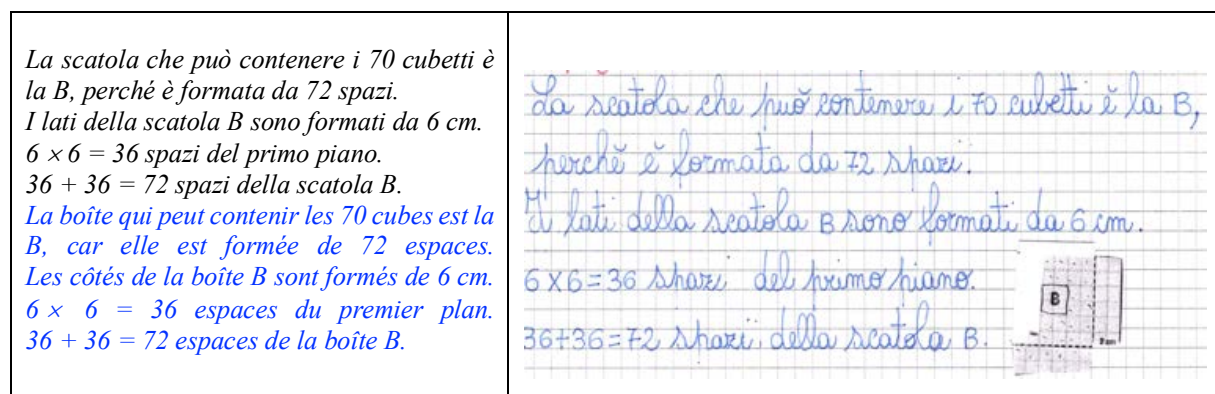 La scatola che può contenere i 70 cubetti è
la B, perché è formata da 72 spazi.
I lati della scatola B sono formati da 6 cm.
6 × 6 = 36 spazi del primo piano.
36 + 36 = 72 spazi della scatola B.
La boîte qui peut contenir les 70 cubes est la
B, car elle est formée de 72 espaces.
Les côtés de la boîte B sont formés de 6 cm.
6 × 6 = 36 espaces du premier plan.
36 + 36 = 72 espaces de la boîte B.
La scatola che può contenere i 70 cubetti è la B,
perchè è formata da 72 spazi.
I lati della scatola B sono formati da 6 cm.
6 X 6 = 36 spazi del primo piano.
36+36=72 spazi della scatola B.
B